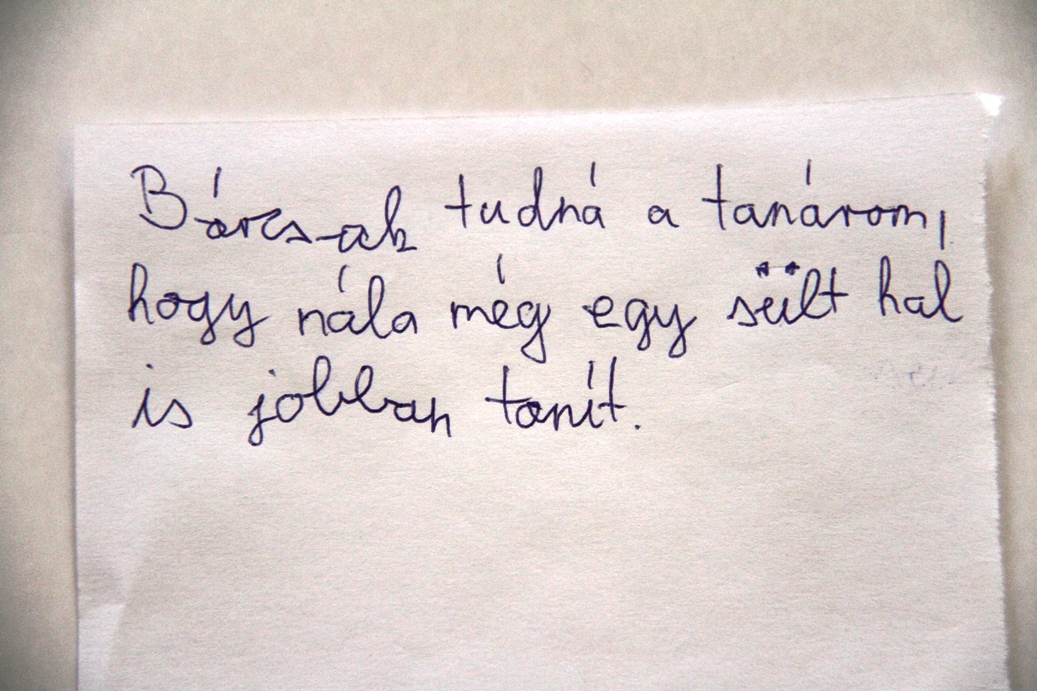 Bárcsak tudná a tanárom,
hogy nála még egy sült hal
is jobban tanít.